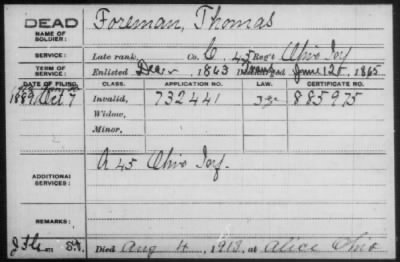 DEAD Foreman, Thomas
NAME OF SOLDIER:
SERVICE: Late rank, Co. C, 45 Reg't Ohio Inf
TERM OF SERVICE: Enlisted Dec 1863 June 12, 1865
DATE OF FILING. CLASS. APPLICATION NO. LAW. CERTIFICATE NO.
1889 Oct 7 Invalid, 732441 885975
Widow,
Minor,
ADDITIONAL SERVICES: A 45 Ohio Inf.
REMARKS:
Died Aug 4, 1913, at Alice Ohio